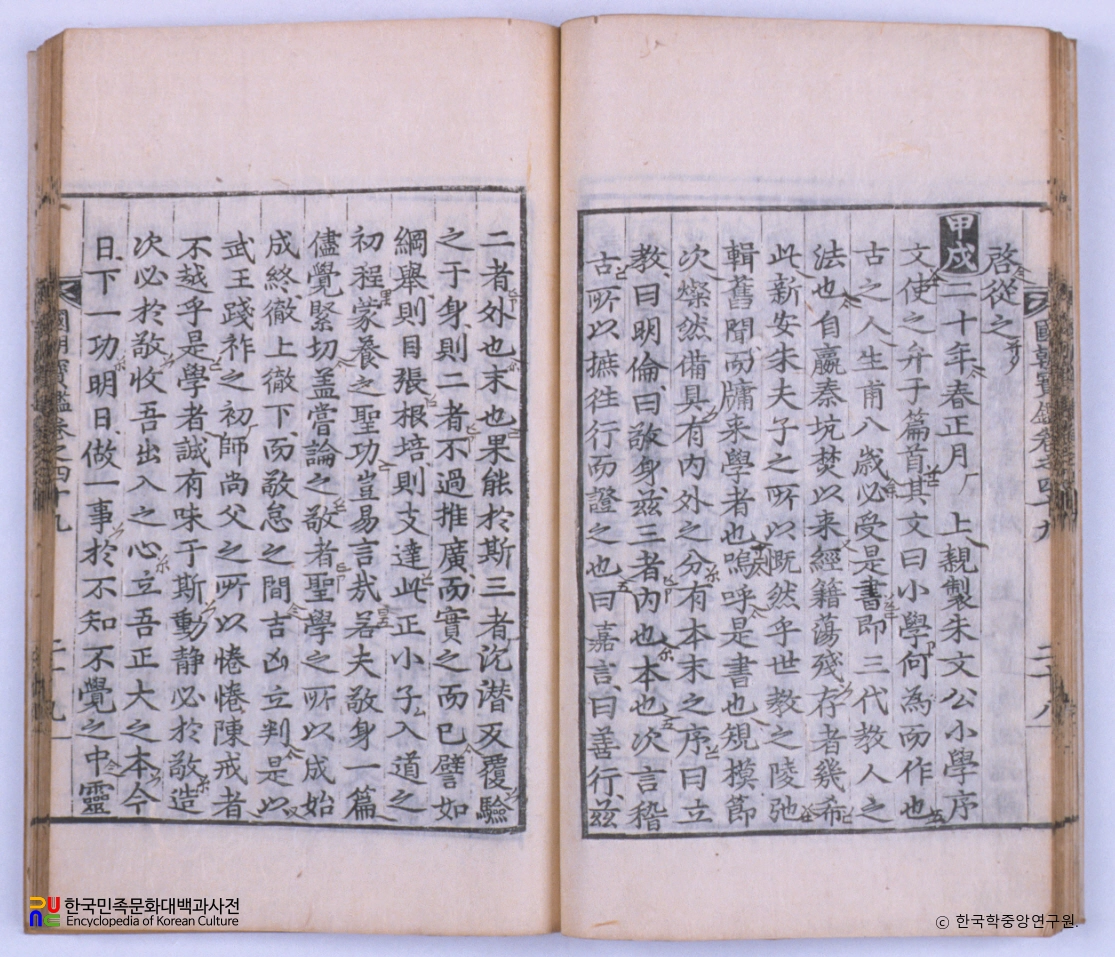 國朝寶鑑卷之四十九
二十八
啓從之
甲戌
二十年春正月上親製朱文公小學序
文使之弁于篇首其文曰小學何為而作也
古之人生甫八歲必受是書即三代教人之
法也自嬴秦坑焚以来經籍蕩殘存者幾希
此新安朱夫子之所以慨然乎世教之陵弛
輯舊聞而牖来學者也嗚呼是書也規模節
次燦然備具有内外之分有本末之序曰立
教曰明倫曰敬身兹三者内也本也次言稽
古所以摭徃行而證之也曰嘉言曰善行兹
二者外也末也果能於斯三者沉潜反覆驗
之于身則二者不過推廣而實之而已譬如
綱舉則目張根培則支達此正小子入道之
初程蒙養之聖功豈易言哉若夫敬身一篇
儘覺緊切盖嘗論之敬者聖學之所以成始
成終徹上徹下而敬怠之間吉凶立判是以
武王踐祚之初師尚父之所以惓惓陳戒者
不越乎是學者誠有味于斯動静必於敬造
次必於敬收吾出入之心立吾正大之本今
日下一功明日做一事於不知不覺之中靈
國朝寶鑑卷之四十九
二十九
한국민족문화대백과사전
Encyclopedia of Korean Culture
© 한국학중앙연구원.